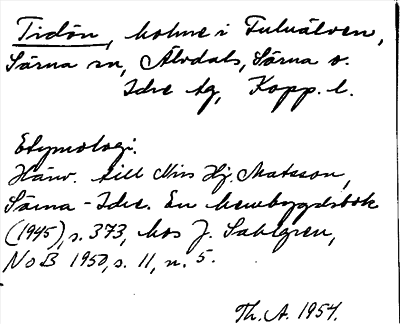 Tidön, holme i Fuluälven,
Särna sn, Älvdals, Särna o.
Idre tg, Kopp. l.
Etymologi.
Hänv. till Miss Hj. Matsson,
Särna-Idre. En hembygdsbok
(1945), s. 373, hos J. Sahlgren,
NoB 1950, s. 11, n. 5.
Th. A. 1954.